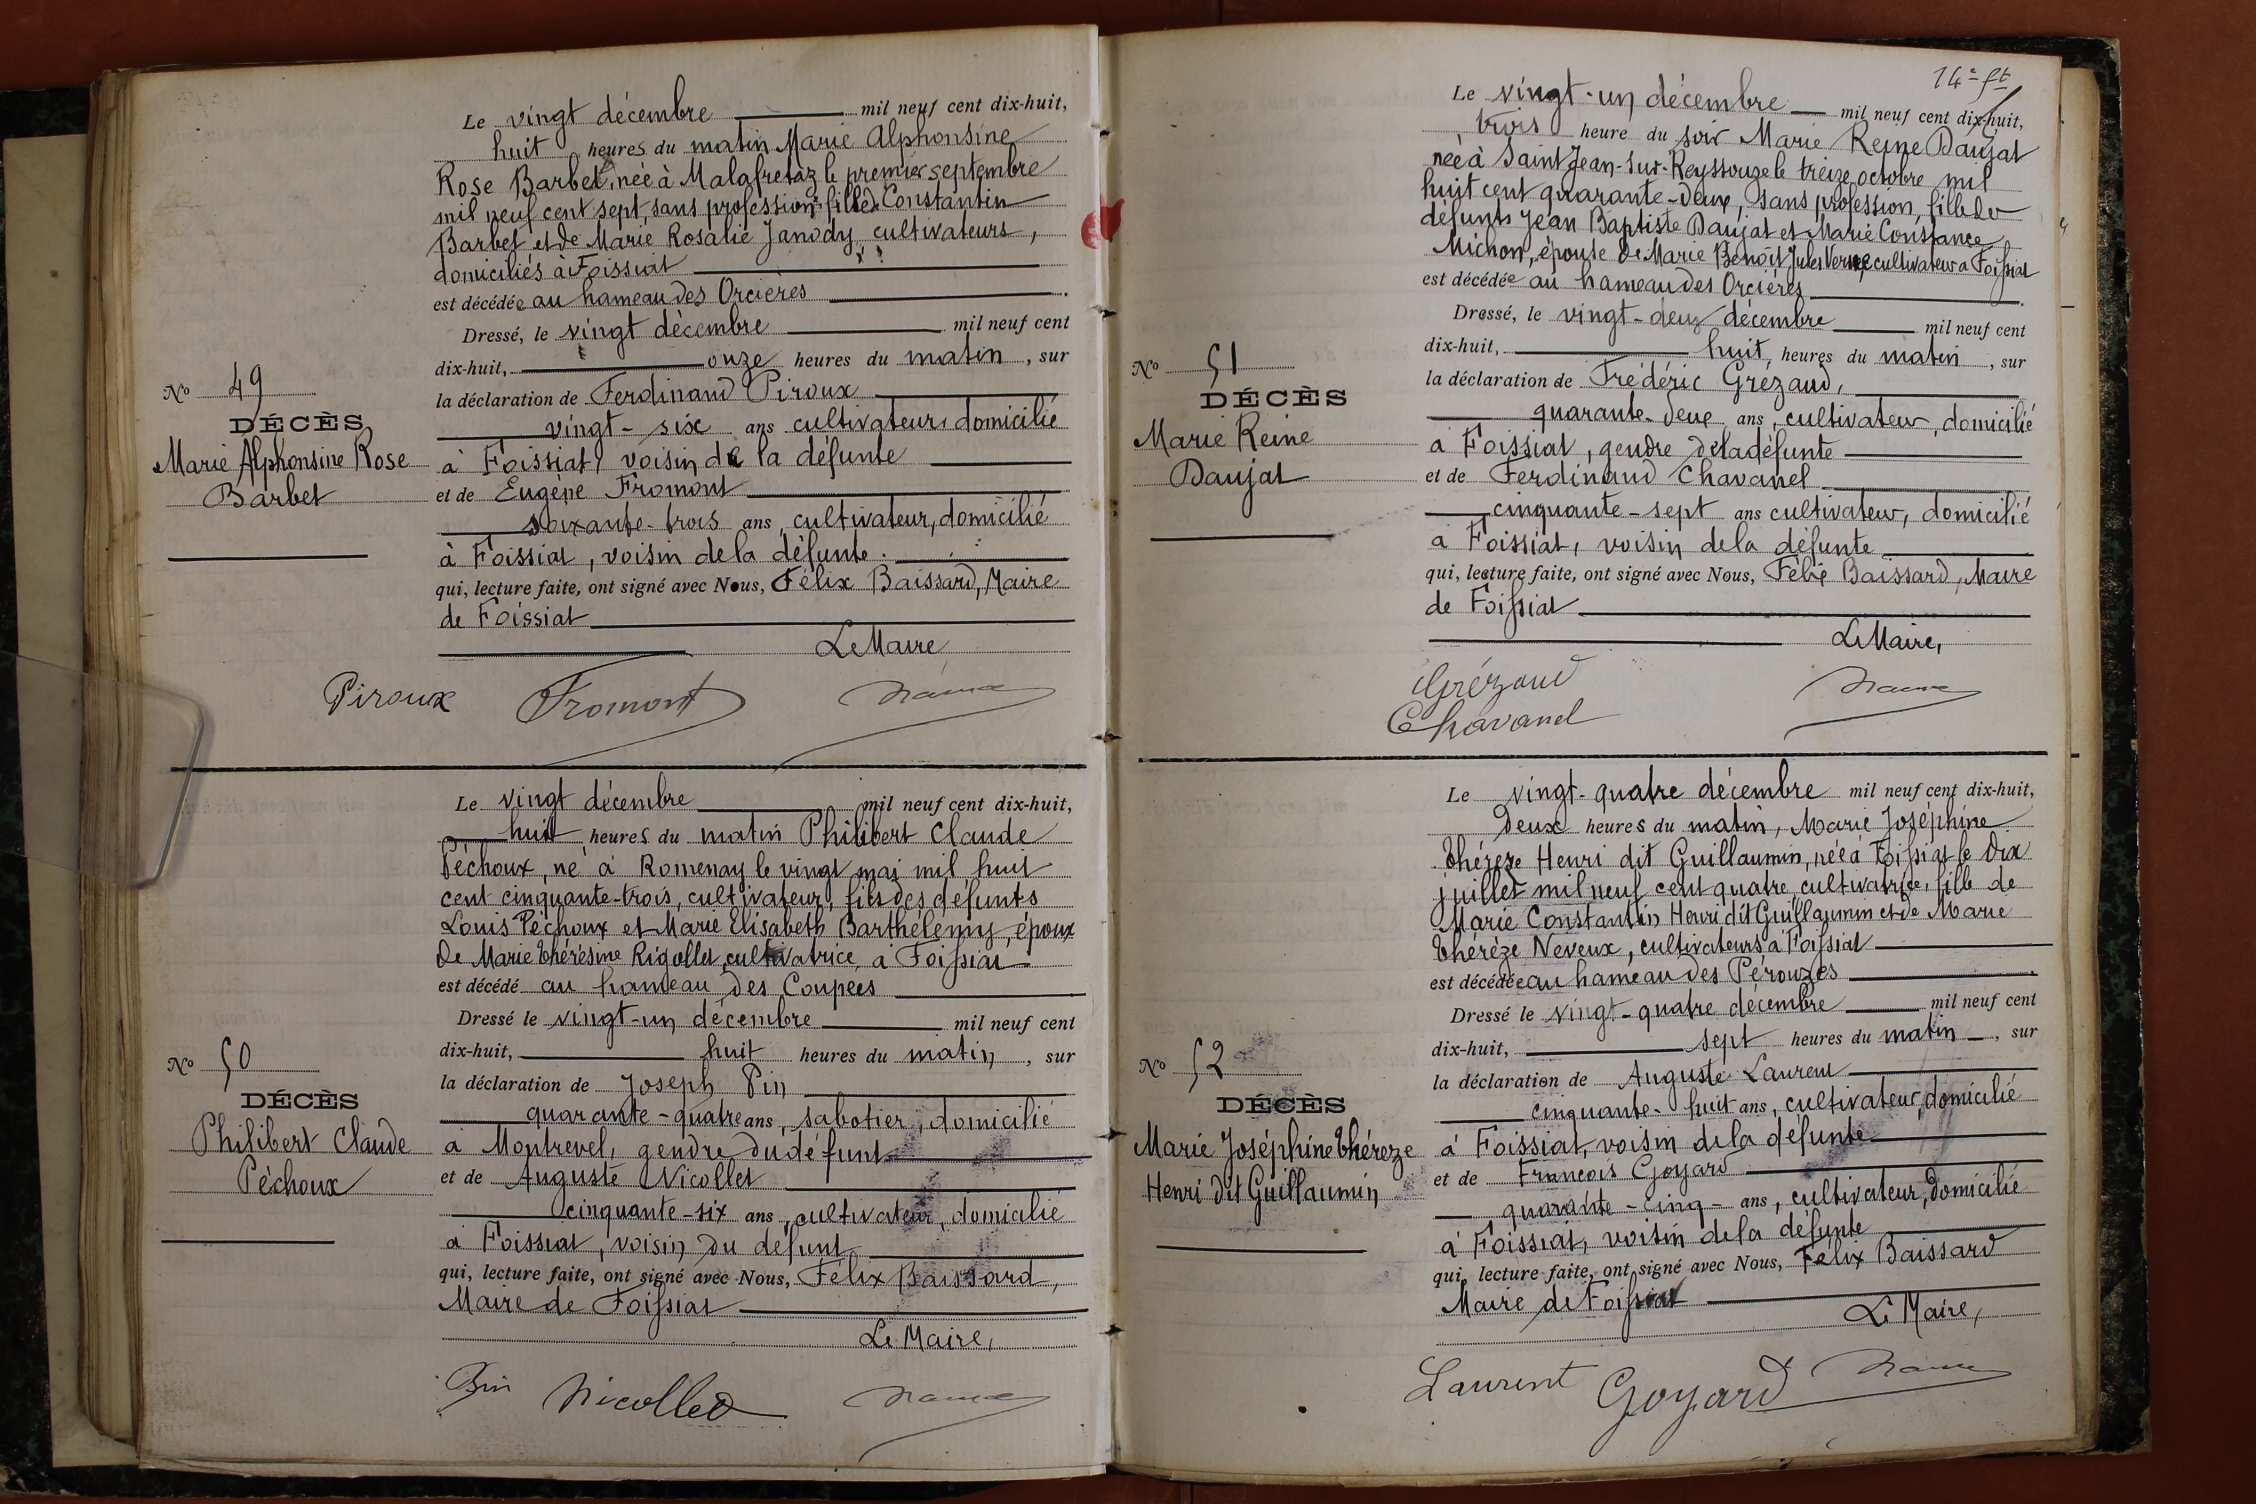 Le vingt décembre mil neuf cent dix-huit,
huit heures du matin Marie Alphonsine
Rose Barbet, née à Malafretaz le premier septembre
mil neuf cent sept, sans profession, fille de Constantin
Barbet et de Marie Rosalie Janody, cultivateurs,
domiciliés à Foissiat
est décédée au hameau des Orcières
Dressé, le vingt décembre mil neuf cent
dix-huit, onze heures du matin, sur
la déclaration de Ferdinand Piroux
vingt-six ans cultivateur, domicilié
à Foissiat, voisin de la défunte
et de Eugène Fromont
soixante-trois ans, cultivateur, domicilié
à Foissiat, voisin de la défunte.
qui, lecture faite, ont signé avec Nous, Félix Baissard, Maire
de Foissiat
Le Maire
Piroux Fromont
No 49
DÉCÈS
Marie Alphonsine Rose
Barbet
Le vingt décembre mil neuf cent dix-huit,
huit heures du matin Philibert Claude
Péchoux, né à Romenay le vingt mai mil huit
cent cinquante-trois, cultivateur, fils des défunts
Louis Péchoux et Marie Elisabeth Barthélemy, époux
de Marie Thérésine Rigollet, cultivatrice, à Foissiat
est décédé au hameau des Coupees
Dressé le vingt-un décembre mil neuf cent
dix-huit, huit heures du matin, sur
la déclaration de Joseph Pin
quarante-quatre ans, sabotier, domicilié
à Montrevel, gendre du défunt
et de Auguste Nicollet
cinquante-six ans, cultivateur, domicilié
à Foissiat, voisin du défunt
qui, lecture faite, ont signé avec Nous, Félix Baissard,
Maire de Foissiat
Le Maire,
Pin Nicollet
No 50
DÉCÈS
Philibert Claude
Péchoux
14e ft
Le vingt-un décembre mil neuf cent dix-huit,
trois heure du soir Marie Reine Daujat
née à Saint Jean-sur-Reyssouze le treize octobre mil
huit cent quarante-deux, sans profession, fille de
défunts Jean Baptiste Daujat et Marie Constance
Michon, épouse de Marie Benoît Jules Verne, cultivateur à Foissiat
est décédée au hameau des Orcières
Dressé, le vingt-deux décembre mil neuf cent
dix-huit, huit, heures du matin, sur
la déclaration de Frédéric Grézaud,
quarante-deux ans, cultivateur, domicilié
à Foissiat, gendre de la défunte
et de Ferdinand Chavanel
cinquante-sept ans cultivateur, domicilié
à Foissiat, voisin de la défunte
qui, lecture faite, ont signé avec Nous, Félix Baissard, Maire
de Foissiat
Le Maire,
Grézaud
Chavanel
No 51
DÉCÈS
Marie Reine
Daujat
Le vingt-quatre décembre mil neuf cent dix-huit,
Deux heures du matin, Marie Joséphine
Thérèze Henri dit Guillaumin, née à Foissiat le dix
juillet mil neuf cent quatre, cultivatrice, fille de
Marie Constantin Henri dit Guillaumin et de Marie
Thérèze Neveux, cultivateurs à Foissiat
est décédée au hameau des Pérouzes
Dressé le vingt-quatre décembre mil neuf cent
dix-huit, sept heures du matin, sur
la déclaration de Auguste Laurent
cinquante-huit ans, cultivateur, domicilié
à Foissiat, voisin de la défunte
et de François Goyard
quarante-cinq ans, cultivateur, domicilié
à Foissiat, voisin de la défunte
qui, lecture faite, ont signé avec Nous, Félix Baissard
Maire de Foissiat
Le Maire,
Laurent Goyard
No 52
DÉCÈS
Marie Joséphine Thérèze
Henri dit Guillaumin